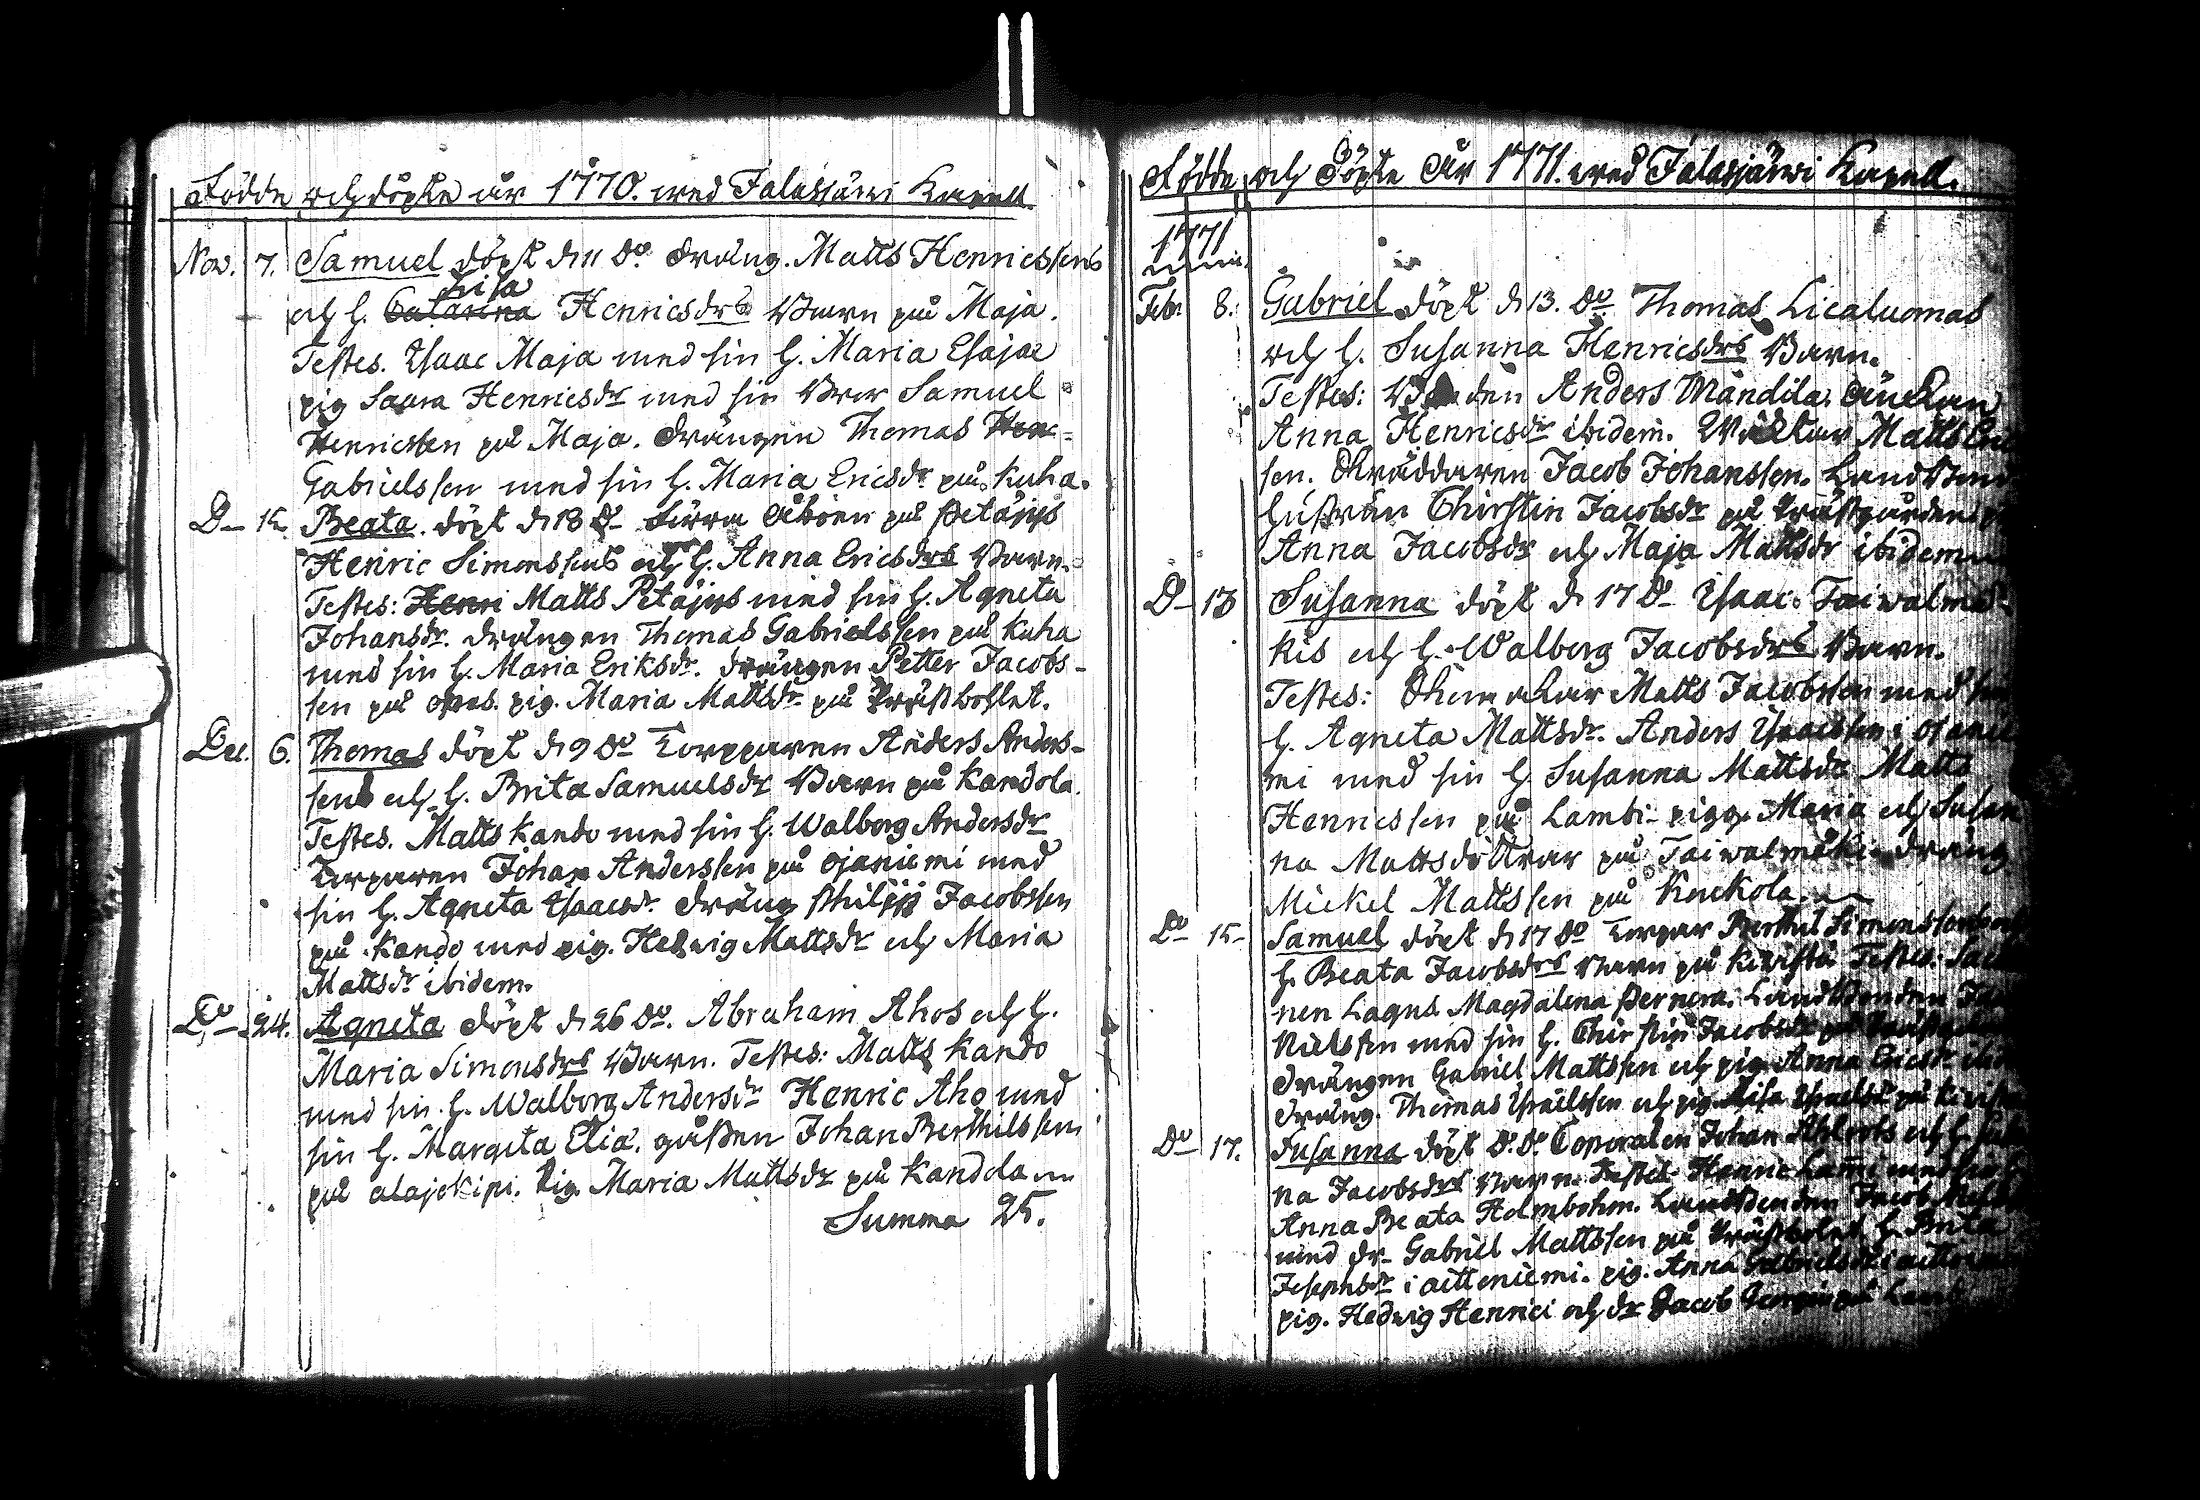 Födde och döpte år 1770. wed Jalasjärwi Kapell.
Nov. 7. Samuel döpt d. 11 do. dräng. Matts Henricssens
Lisa
och h. Catarina Henricsdrs Barn på Maja.
Testes. Isaac Maja med sin h. Maria Esajae
pig Saara Henricsdr med sin Bror Samuel
Henricssen på Maja. drängen Thomas Hen-
Gabrielssen med sin h. Maria Ericsdr på Kuha.
D– 15. Beata. döpt d. 18 D– på Petäjys
Henric Simonssens och h. Anna Ericsdrs Barn.
Testes: Henri Matts Petäjys med sin h. Agneta
Johansdr. drängen Thomas Gabrielssen på Kuha
med sin h. Maria Eriksdr. drängen Petter Jacobs-
sen på pig. Maria Mattsdr på Prästbohlet.
Dec. 6. Thomas döpt d. 9 do Torpparen Anders Anders-
sens och h. Brita Samuelsdr Barn på Kandola.
Testes. Matts Kando med sin h. Walborg Andersdr
Torparen Johan Anderssen på Ojaniemi med
sin h. Agneta Isaacsdr. dräng Philip Jacobssen
på Kando med pig. Hedwig Mattsdr och Maria
Mattsdr ibidem.
Do– 24. Agneta döpt d. 26 do. Abraham Ahos och h.
Maria Simonsdrs Barn. Testes: Matts Kando
med sin h. Walborg Andersdr Henric Aho med
sin h. Margeta Elia. gåßen Johan Berthilssen
på alajokipi. Pig. Maria Mattsdr på Kandola
Summa 25.
Födde och Döpte År 1771. wed Jalasjärwi Kapell.
1771
Febr 8. Gabriel döpt d. 13. do Thomas Licaluomas
och h. Susanna Henricsdrs Barn.
Testes: Anders Mandila. Änkan
Anna Henricsdr ibidem. Matts
sen. Skräddaren Jacob Johanssen.
hustrun Chirstin Jacobsdr på Prästgården
Anna Jacobsdr och Maja Mattsdr ibidem
D– 13 Susanna döpt d. 17 D– Isaac Taiwalmä-
kis och h. Walborg Jacobsdrs Barn.
Testes: Matts Jacobssen med sin
h. Agneta Mattsdr. Anders Isaacssen i
mi med sin h Susanna Mattsdr Matts
Henricssen på Lambi. pigg. Maria och Susan
na Mattsdöttrar på Taiwalmäki. dräng
Mickel Mattssen på Knckola.
Do 15– Samuel döpt d. 17 do Torpar Berthil Simonssens
h. Beata Jacobsdrs Barn på Kiwistö Testes:
nen Lagus Magdalena Pernera.
Nielssen med sin h. Chirstin Jacobsdr på
drängen Gabriel Mattssen och pig. Anna Ericsdr
dräng. Thomas Israelssen och pig. Lisa Israelsdr på
Do 17. Susanna döpt D. do Coporalen Johan Ahlrots och h.
na Jacobsdrs Barn. Testes Henric Lami med sin
Anna Beata Holmbohm. Jacob
med dr– Gabriel Mattssen på Prästbolet h. Brita
Josephsdr i aittoniemi. pig. Anna Gabrielsdr i
pig. Hedwig Henrici och dr Jacob